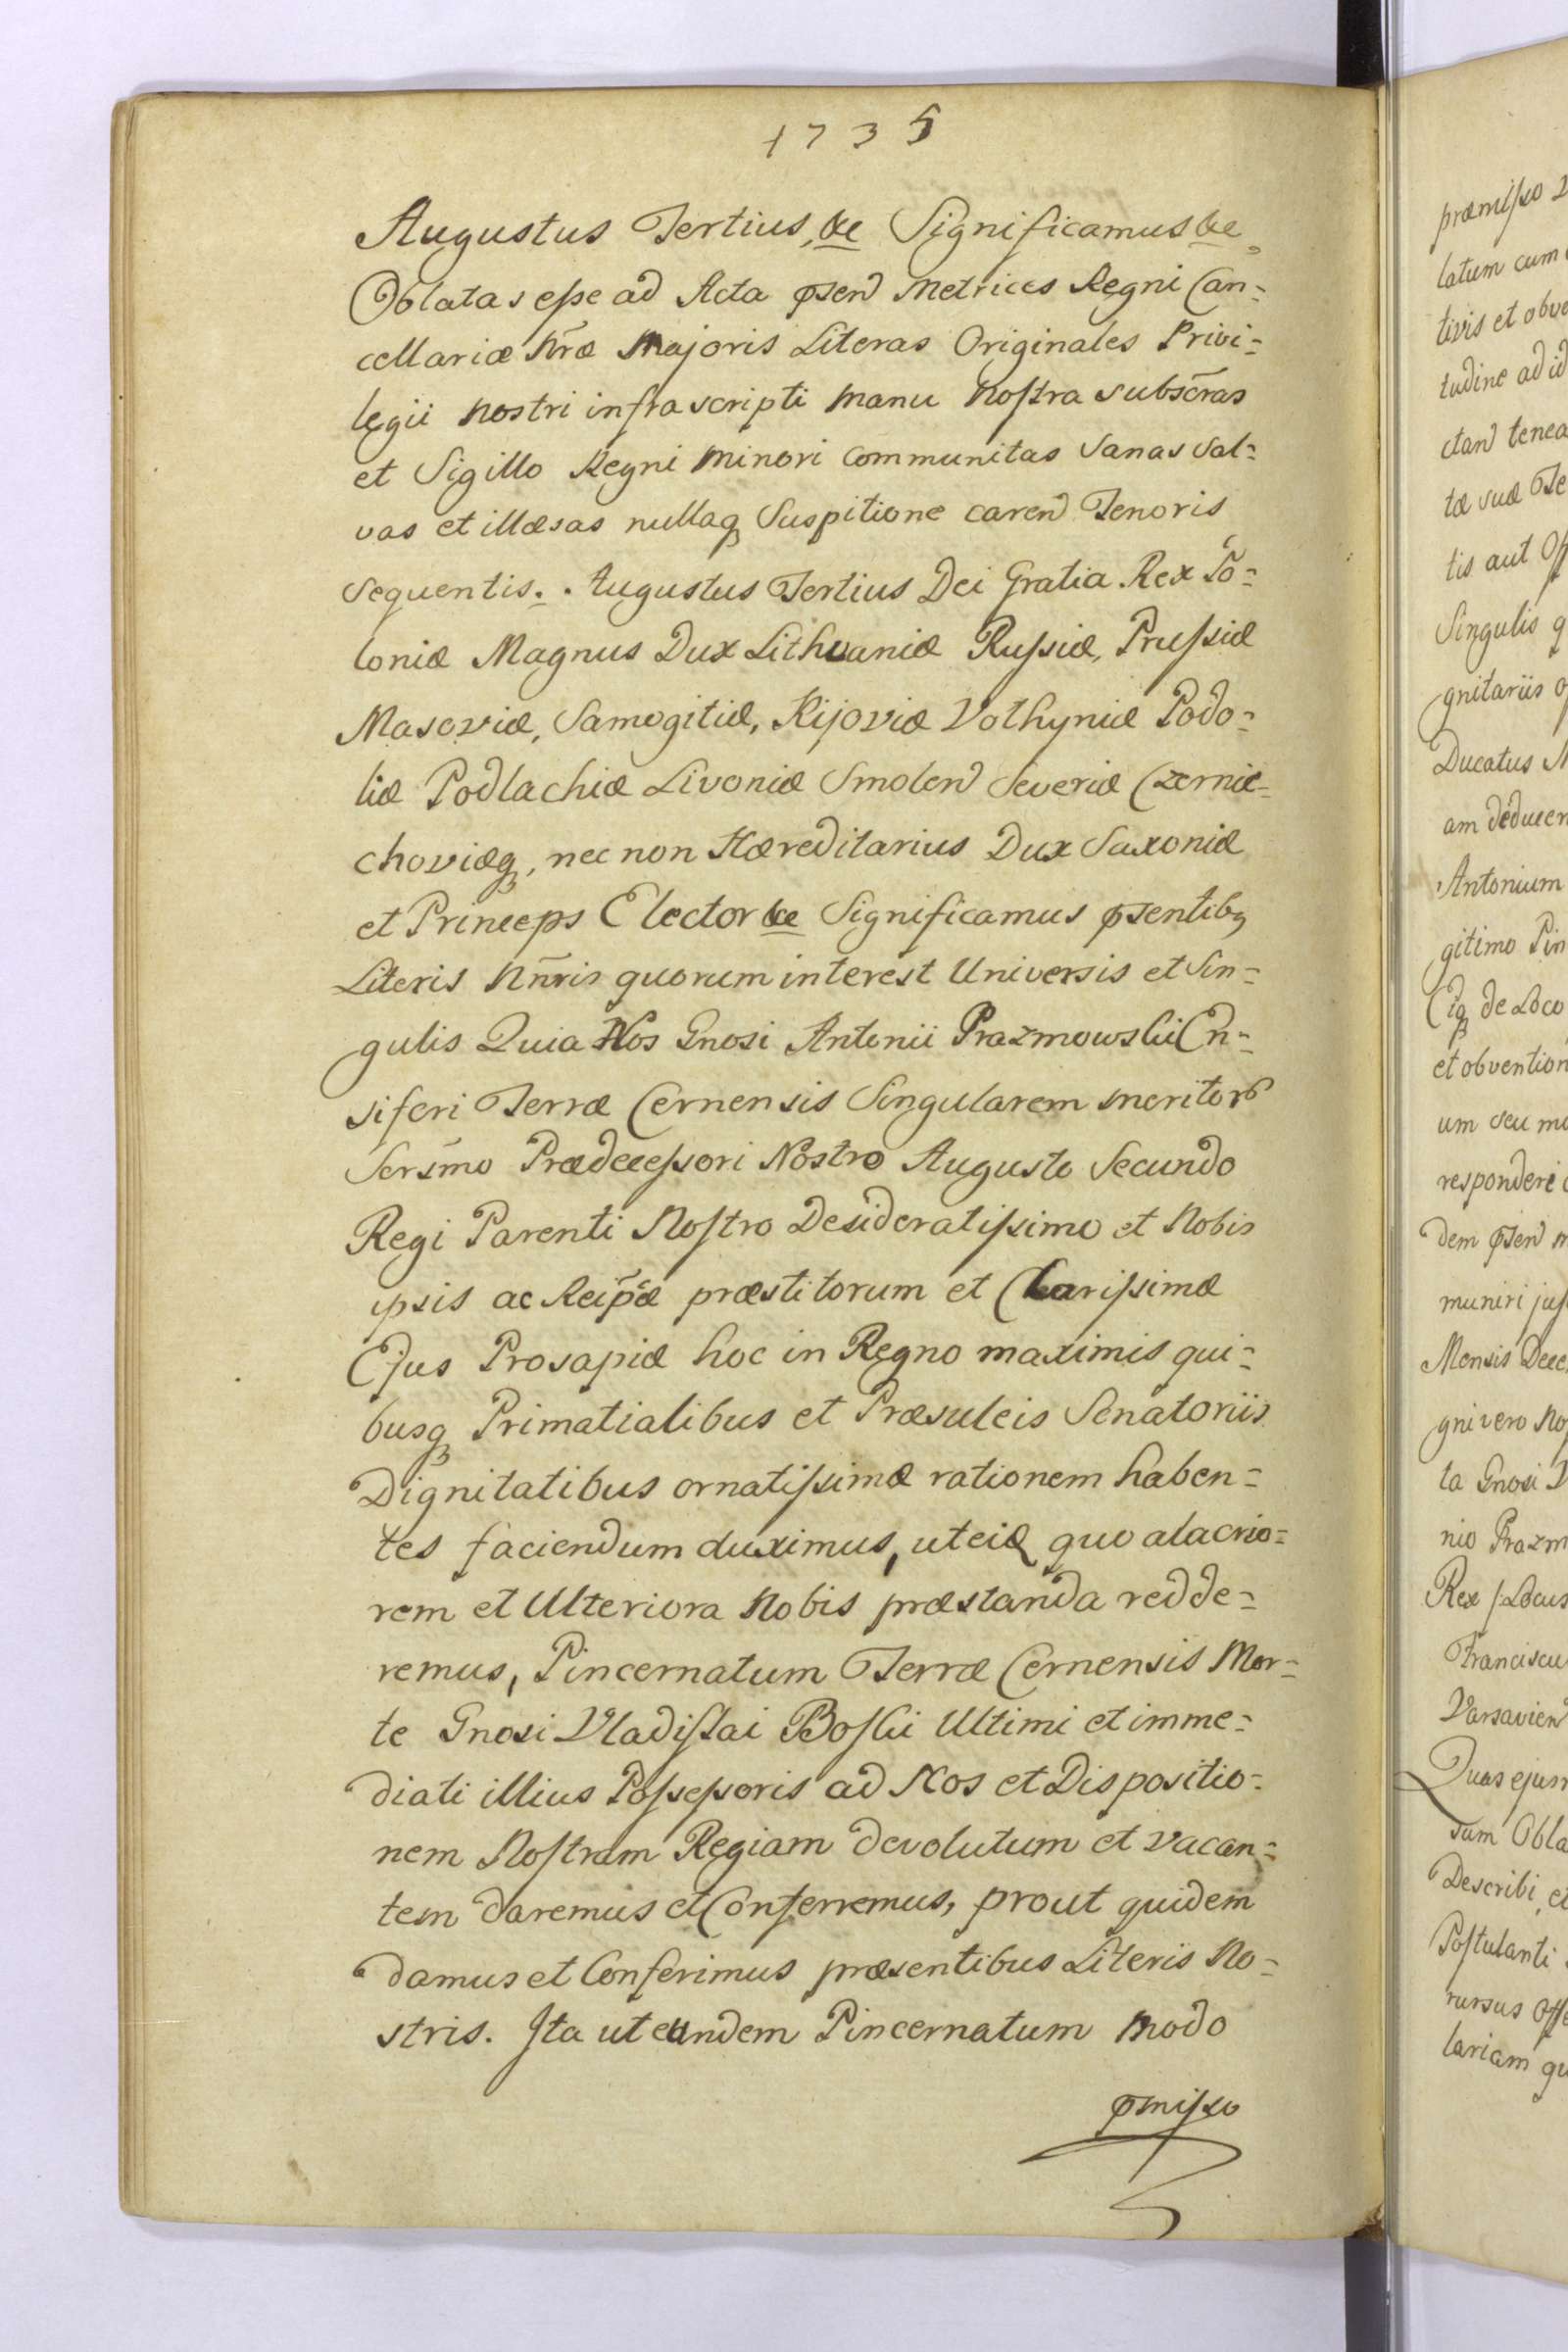 1735
Augustus Tertius, &c Significamus &c
Oblatas esse ad Acta pſend Metrices Regni Can=
cellariæ Nr̃æ Majoris Literas Originales Privi=
legii nostri infrascripti manu Noſtra subsc̃ras
et Sigillo Regni Minori communitas Sanas Sal=
vas et illæsas nullaq Suspitione caren Tenoris
sequentis. . Augustus Tertius Dei Gratia Rex Po=
loniæ Magnus Dux Lithvaniæ Ruſsiæ, Pruſsiæ
Masoviæ, Samogitiæ, Kijoviæ Volhyniæ Podo=
liæ Podlachiæ Livoniæ Smolen Severiæ Czernie=
choviæq, nec non Hæreditarius Dux Saxoniæ
et Princeps Elector &c Significamus pſentibq
Literis Nñris quorum interest Universis et Sin=
gulis Quia Nos Gnosi Antonii Prazmowski En=
siferi Terræ Cernensis Singularem meritor
Sersm̃o Prædeceſsori Nostro Augusto Secundo
Regi Parenti Noſtro Desideratiſsimo et Nobis
ipsis ac Reip̃cæ præstitorum et Clariſsimæ
Ejus Prosapiæ hoc in Regno maximis qui=
busq Primatialibus et Præsuleis Senatoriis
Dignitatibus ornatiſsimæ rationem haben=
tes faciendum duximus, ut eiq quo alacrio=
rem et Ulteriora Nobis præstanda redde=
remus, Pincernatum Terræ Cernensis Mor=
te Gnosi Vladiſlai Boſki Ultimi et imme=
diati illius Poſseſsoris ad Nos et Dispositio=
nem Noſtram Regiam devolutum et vacan=
tem daremus et Conferremus, prout quidem
damus et Conferimus præsentibus Literis No=
stris. Ita ut eundem Pincernatum modo
pmiſso
præmiſso
latum cum
tivis et obve
tudine ad id
ctand tenea
tæ suæ Te
tis aut Off
Singulis q
gnitariis o
Ducatus M
am deducen
Antonium
gitimo Pin
Ciq de Loco
et obvention
um seu mo
responderi
dem pſen m
muniri juſ
Mensis Dece
gni vero No
ta Gnosi
nio Prazm
Rex /: Locus
Franciscu
Varsavien
Quas ejusm
sum Obla
Describi, et
Poſtulanti
rursus Offe
lariam qu